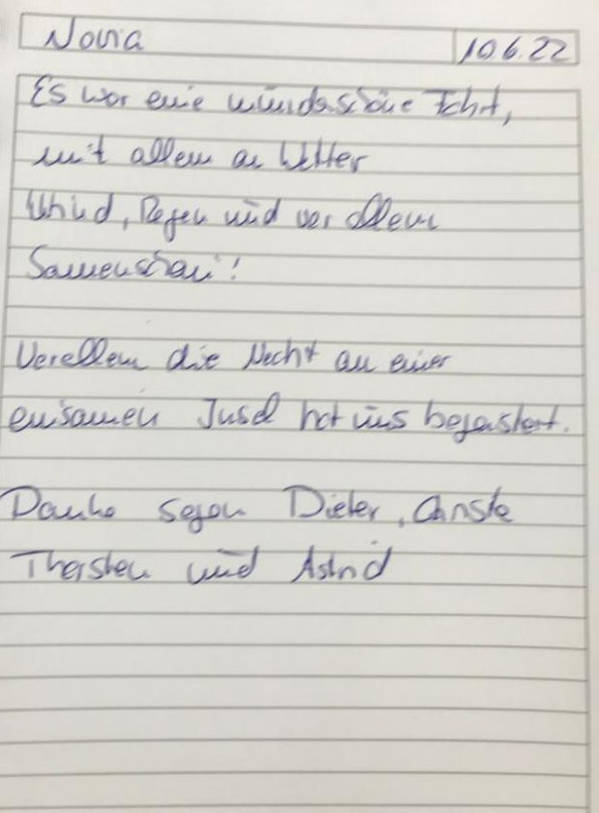 Novia
10.6.22
Es war eine wunderschöne Fahrt,
mit allem an Wetter
Wind, Regen und vor allem
Sonnenschein!
Vorallem die Nacht an einer
einsamen Insel hat uns begeistert.
Danke sagen Dieter, Christe
Thorsten und Astrid